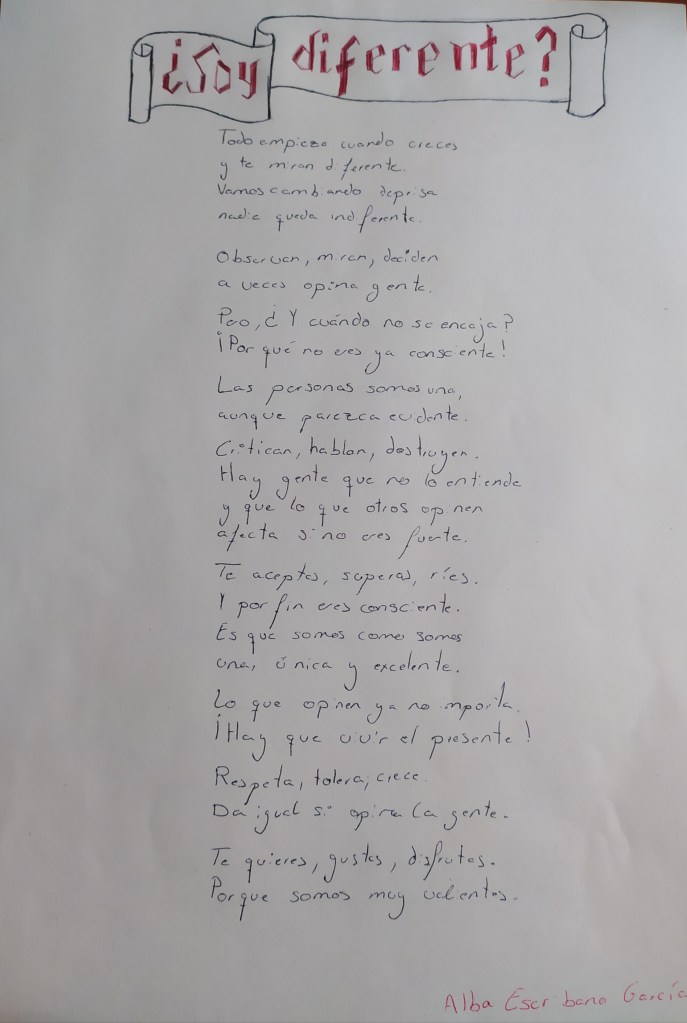 ¿Soy diferente?
Todo empieza cuando creces
y te miran diferente.
Vamos cambiando deprisa
nadie queda indiferente.
Observan, miran, deciden
a veces opina gente.
Pero, ¿Y cuándo no se encaja?
¡Por qué no eres ya consciente!
Las personas somos una,
aunque parezca evidente.
Critican, hablan, destruyen.
Hay gente que no lo entiende
y que lo que otros opinen
afecta si no eres fuerte.
Te aceptas, superas, ríes.
Y por fin eres consciente.
Es que somos como somos
una, única y excelente.
Lo que opinen ya no importa.
¡Hay que vivir el presente!
Respeta, tolera, crece.
Da igual si opina la gente.
Te quieres, gustas, disfrutas.
Porque somos muy valientes.
Alba Escribano García